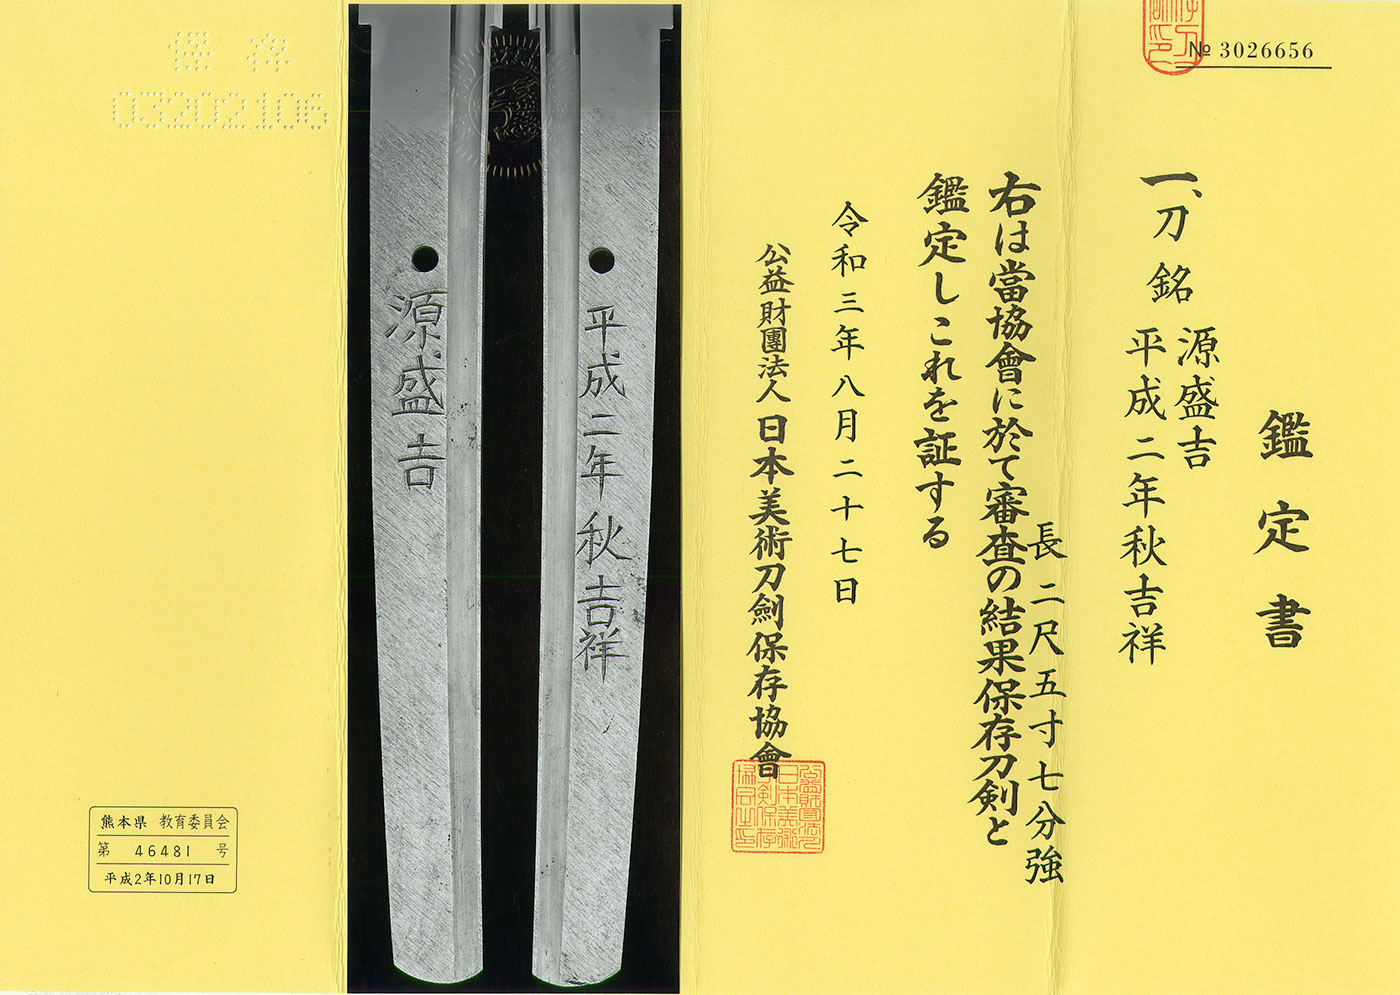 № 3026656
鑑定書
一、刀 銘 源盛吉
平成二年秋吉祥
長二尺五寸七分強
右は當協會に於て審査の結果保存刀剣と
鑑定しこれを証する
令和三年八月二十七日
公益財團法人日本美術刀劍保存協會
平成二年秋吉祥
源盛吉
保存
03202106
熊本県 教育委員会
第 46481 号
平成2年10月17日